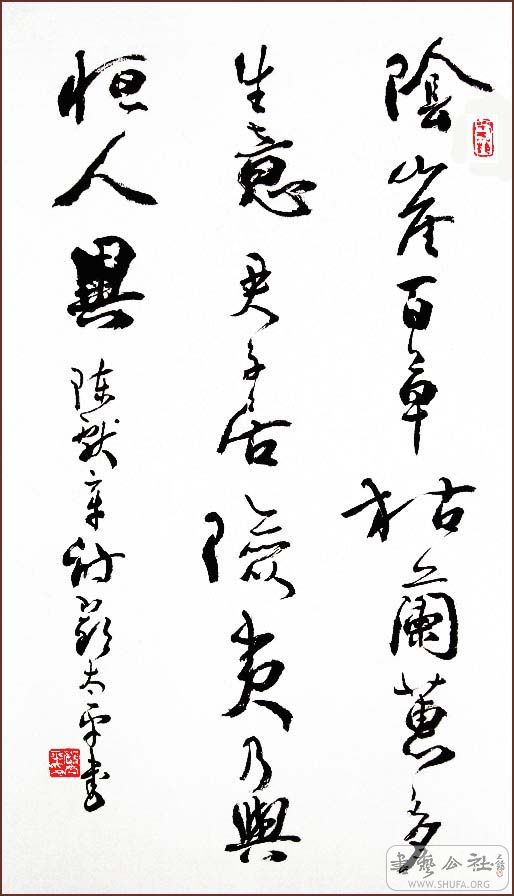 陰崖百草枯蘭蕙多
生意君子居險夷乃與
恒人異
陈献章诗 太平书
书艺公社
WWW.SHUFA.ORG